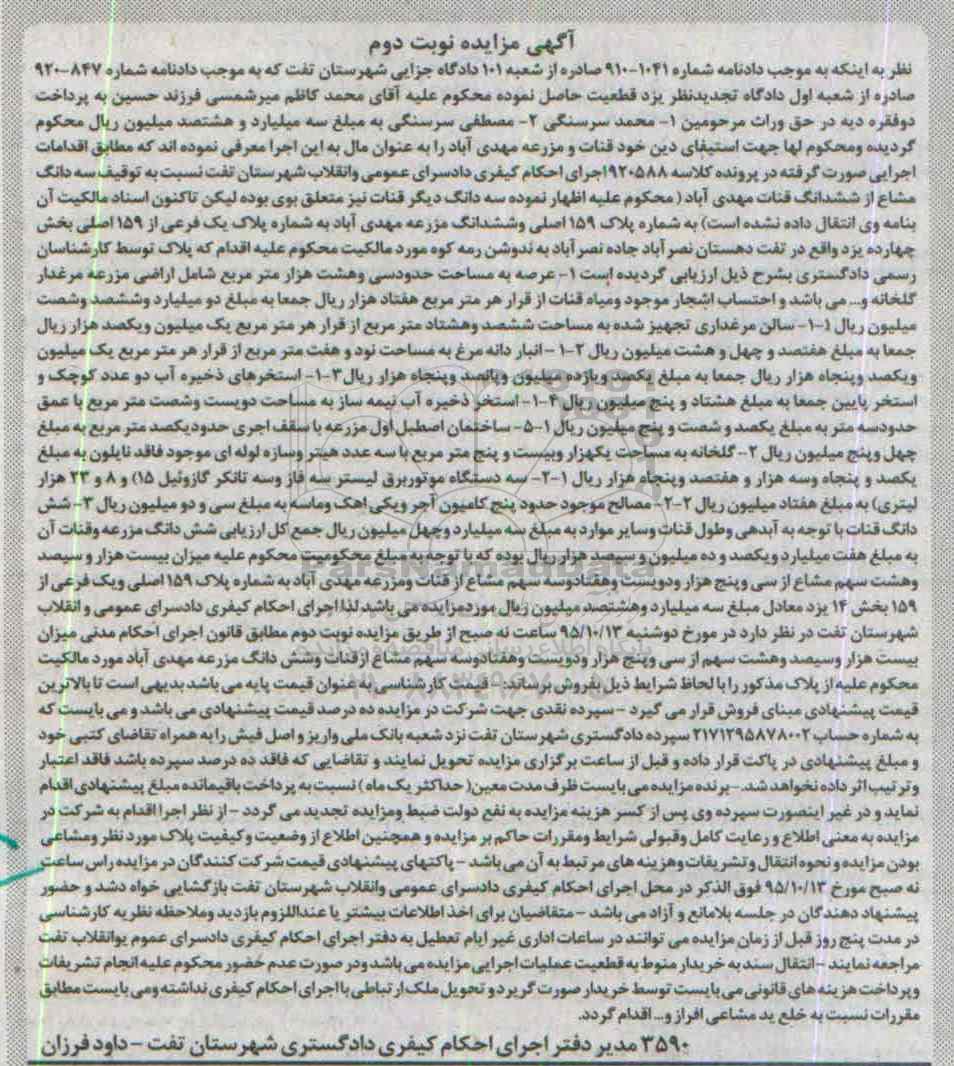 آگهی مزایده نوبت دوم
نظر به اینکه به موجب دادنامه شماره ۱۰۴۱-۹۱۰ صادره از شعبه ۱۰۱ دادگاه جزایی شهرستان تفت که به موجب دادنامه شماره ۸۴۷-۹۲۰
صادره از شعبه اول دادگاه تجدیدنظر یزد قطعیت حاصل نموده محکوم علیه آقای محمد کاظم میرشمسی فرزند حسین به پرداخت
دوفقره دیه در حق وراث مرحومین ۱- محمد سرسنگی ۲- مصطفی سرسنگی به مبلغ سه میلیارد و هشتصد میلیون ریال محکوم
گردیده ومحکوم لها جهت استیفای دین خود قنات و مزرعه مهدی آباد را به عنوان مال به این اجرا معرفی نموده اند که مطابق اقدامات
اجرایی صورت گرفته در پرونده کلاسه ۹۲۰۵۸۸اجرای احکام کیفری دادسرای عمومی وانقلاب شهرستان تفت نسبت به توقیف سه دانگ
مشاع از ششدانگ قنات مهدی آباد ( محکوم علیه اظهار نموده سه دانگ دیگر قنات نیز متعلق بوی بوده لیکن تاکنون اسناد مالکیت آن
بنامه وی انتقال داده نشده است) به شماره پلاک ۱۵۹ اصلی وششدانگ مزرعه مهدی آباد به شماره پلاک یک فرعی از ۱۵۹ اصلی بخش
چهارده یزد واقع در تفت دهستان نصر آباد جاده نصر آباد به ندوشن رمه کوه مورد مالکیت محکوم علیه اقدام که پلاک توسط کارشناسان
رسمی دادگستری بشرح ذیل ارزیابی گردیده است ۱- عرصه به مساحت حدودسی وهشت هزار متر مربع شامل اراضی مزرعه مرغدار
گلخانه و... می باشد و احتساب اشجار موجود ومیاه قنات از قرار هر متر مربع هفتاد هزار ریال جمعا به مبلغ دو میلیارد وششصد وشصت
میلیون ریال ۱-۱- سالن مرغداری تجهیز شده به مساحت ششصد وهشتاد متر مربع از قرار هر متر مربع یک میلیون ویکصد هزار ریال
جمعا به مبلغ هفتصد و چهل و هشت میلیون ریال ۲-۱- انبار دانه مرغ به مساحت نود و هفت متر مربع از قرار هر متر مربع یک میلیون
ویکصد وپنجاه هزار ریال جمعا به مبلغ یکصد ویازده میلیون وپانصد وپنجاه هزار ریال ۳-۱- استخرهای ذخیره آب دو عدد کوچک و
استخر پایین جمعا به مبلغ هشتاد و پنج میلیون ریال ۴-۱- استخر ذخیره آب نیمه ساز به مساحت دویست وشصت متر مربع با عمق
حدودسه متر به مبلغ یکصد و شصت و پنج میلیون ریال ۱-۵- ساختمان اصطبل اول مزرعه با سقف اجری حدودیکصد متر مربع به مبلغ
چهل وپنج میلیون ریال ۲- گلخانه به مساحت یکهزار وبیست و پنج متر مربع با سه عدد هیتر وسازه لوله ای موجود فاقد نایلون به مبلغ
یکصد و پنجاه وسه هزار و هفتصد وپنجاه هزار ریال ۱-۲- سه دستگاه موتوربرق لیستر سه فاز وسه تانکر گازوئیل ۱۵) و ۸ و ۲۳ هزار
لیتری) به مبلغ هفتاد میلیون ریال ۲-۲- مصالح موجود حدود پنج کامیون آجر ویکی اهک وماسه به مبلغ سی و دو میلیون ریال ۳- شش
دانگ قنات با توجه به آبدهی وطول قنات وسایر موارد به مبلغ سه میلیارد وچهل میلیون ریال جمع کل ارزیابی شش دانگ مزرعه وقنات آن
به مبلغ هفت میلیارد ویکصد و ده میلیون و سیصد هزار ریال بوده که با توجه به مبلغ محکومیت محکوم علیه میزان بیست هزار و سیصد
وهشت سهم مشاع از سی وپنج هزار ودویست وهفتادوسه سهم مشاع از قنات ومزرعه مهدی آباد به شماره پلاک ۱۵۹ اصلی ویک فرعی از
۱۵۹ بخش ۱۴ یزد معادل مبلغ سه میلیارد وهشتصد میلیون ریال موردمزایده می باشد لذا اجرای احکام کیفری دادسرای عمومی و انقلاب
شهرستان تفت در نظر دارد در مورخ دوشنبه ۹۵/۱۰/۱۳ ساعت نه صبح از طریق مزایده نوبت دوم مطابق قانون اجرای احکام مدنی میزان
بیست هزار وسیصد وهشت سهم از سی وپنج هزار ودویست وهفتادوسه سهم مشاع ازقنات وشش دانگ مزرعه مهدی آباد مورد مالکیت
محکوم علیه از پلاک مذکور را با لحاظ شرایط ذیل بفروش برساند: - قیمت کارشناسی به عنوان قیمت پایه می باشد بدیهی است تا بالاترین
قیمت پیشنهادی مبنای فروش قرار می گیرد - سپرده نقدی جهت شرکت در مزایده ده درصد قیمت پیشنهادی می باشد و می بایست که
به شماره حساب ۲۱۷۱۲۹۵۸۷۸۰۰۲ سپرده دادگستری شهرستان تفت نزد شعبه بانک ملی واریز و اصل فیش را به همراه تقاضای کتبی خود
و مبلغ پیشنهادی در پاکت قرار داده و قبل از ساعت برگزاری مزایده تحویل نمایند و تقاضایی که فاقد ده درصد سپرده باشد فاقد اعتبار
وترتیب اثر داده نخواهد شد. -برنده مزایده می بایست ظرف مدت معین( حداکثر یک ماه ) نسبت به پرداخت باقیمانده مبلغ پیشنهادی اقدام
نماید و در غیر اینصورت سپرده وی پس از کسر هزینه مزایده به نفع دولت ضبط ومزایده تجدید می گردد - از نظر اجرا اقدام به شرکت در
مزایده به معنی اطلاع و رعایت کامل وقبولی شرایط ومقررات حاکم بر مزایده و همچنین اطلاع از وضعیت وکیفیت پلاک مورد نظر ومشاعی
بودن مزایده و نحوه انتقال و تشریفات وهزینه های مرتبط به آن می باشد - پاکتهای پیشنهادی قیمت شرکت کنندگان در مزایده راس ساعت
نه صبح مورخ ۹۵/۱۰/۱۳ فوق الذکر در محل اجرای احکام کیفری دادسرای عمومی وانقلاب شهرستان تفت بازگشایی خواه دشد و حضور
پیشنهاد دهندگان در جلسه بلامانع و آزاد می باشد - متقاضیان برای اخذ اطلاعات بیشتر یا عنداللزوم بازدید وملاحظه نظریه کارشناسی
در مدت پنج روز قبل از زمان مزایده می توانند در ساعات اداری غیر ایام تعطیل به دفتر اجرای احکام کیفری دادسرای عموم یوانقلاب تفت
مراجعه نمایند - انتقال سند به خریدار منوط به قطعیت عملیات اجرایی مزایده می باشد ودر صورت عدم حضور محکوم علیه انجام تشریفات
وپرداخت هزینه های قانونی می بایست توسط خریدار صورت گیرد و تحویل ملک ارتباطی با اجرای احکام کیفری نداشته ومی بایست مطابق
مقررات نسبت به خلع ید مشاعی افراز و... اقدام گردد.
۳۵۹۰ مدیر دفتر اجرای احکام کیفری دادگستری شهرستان تفت - داود فرزان